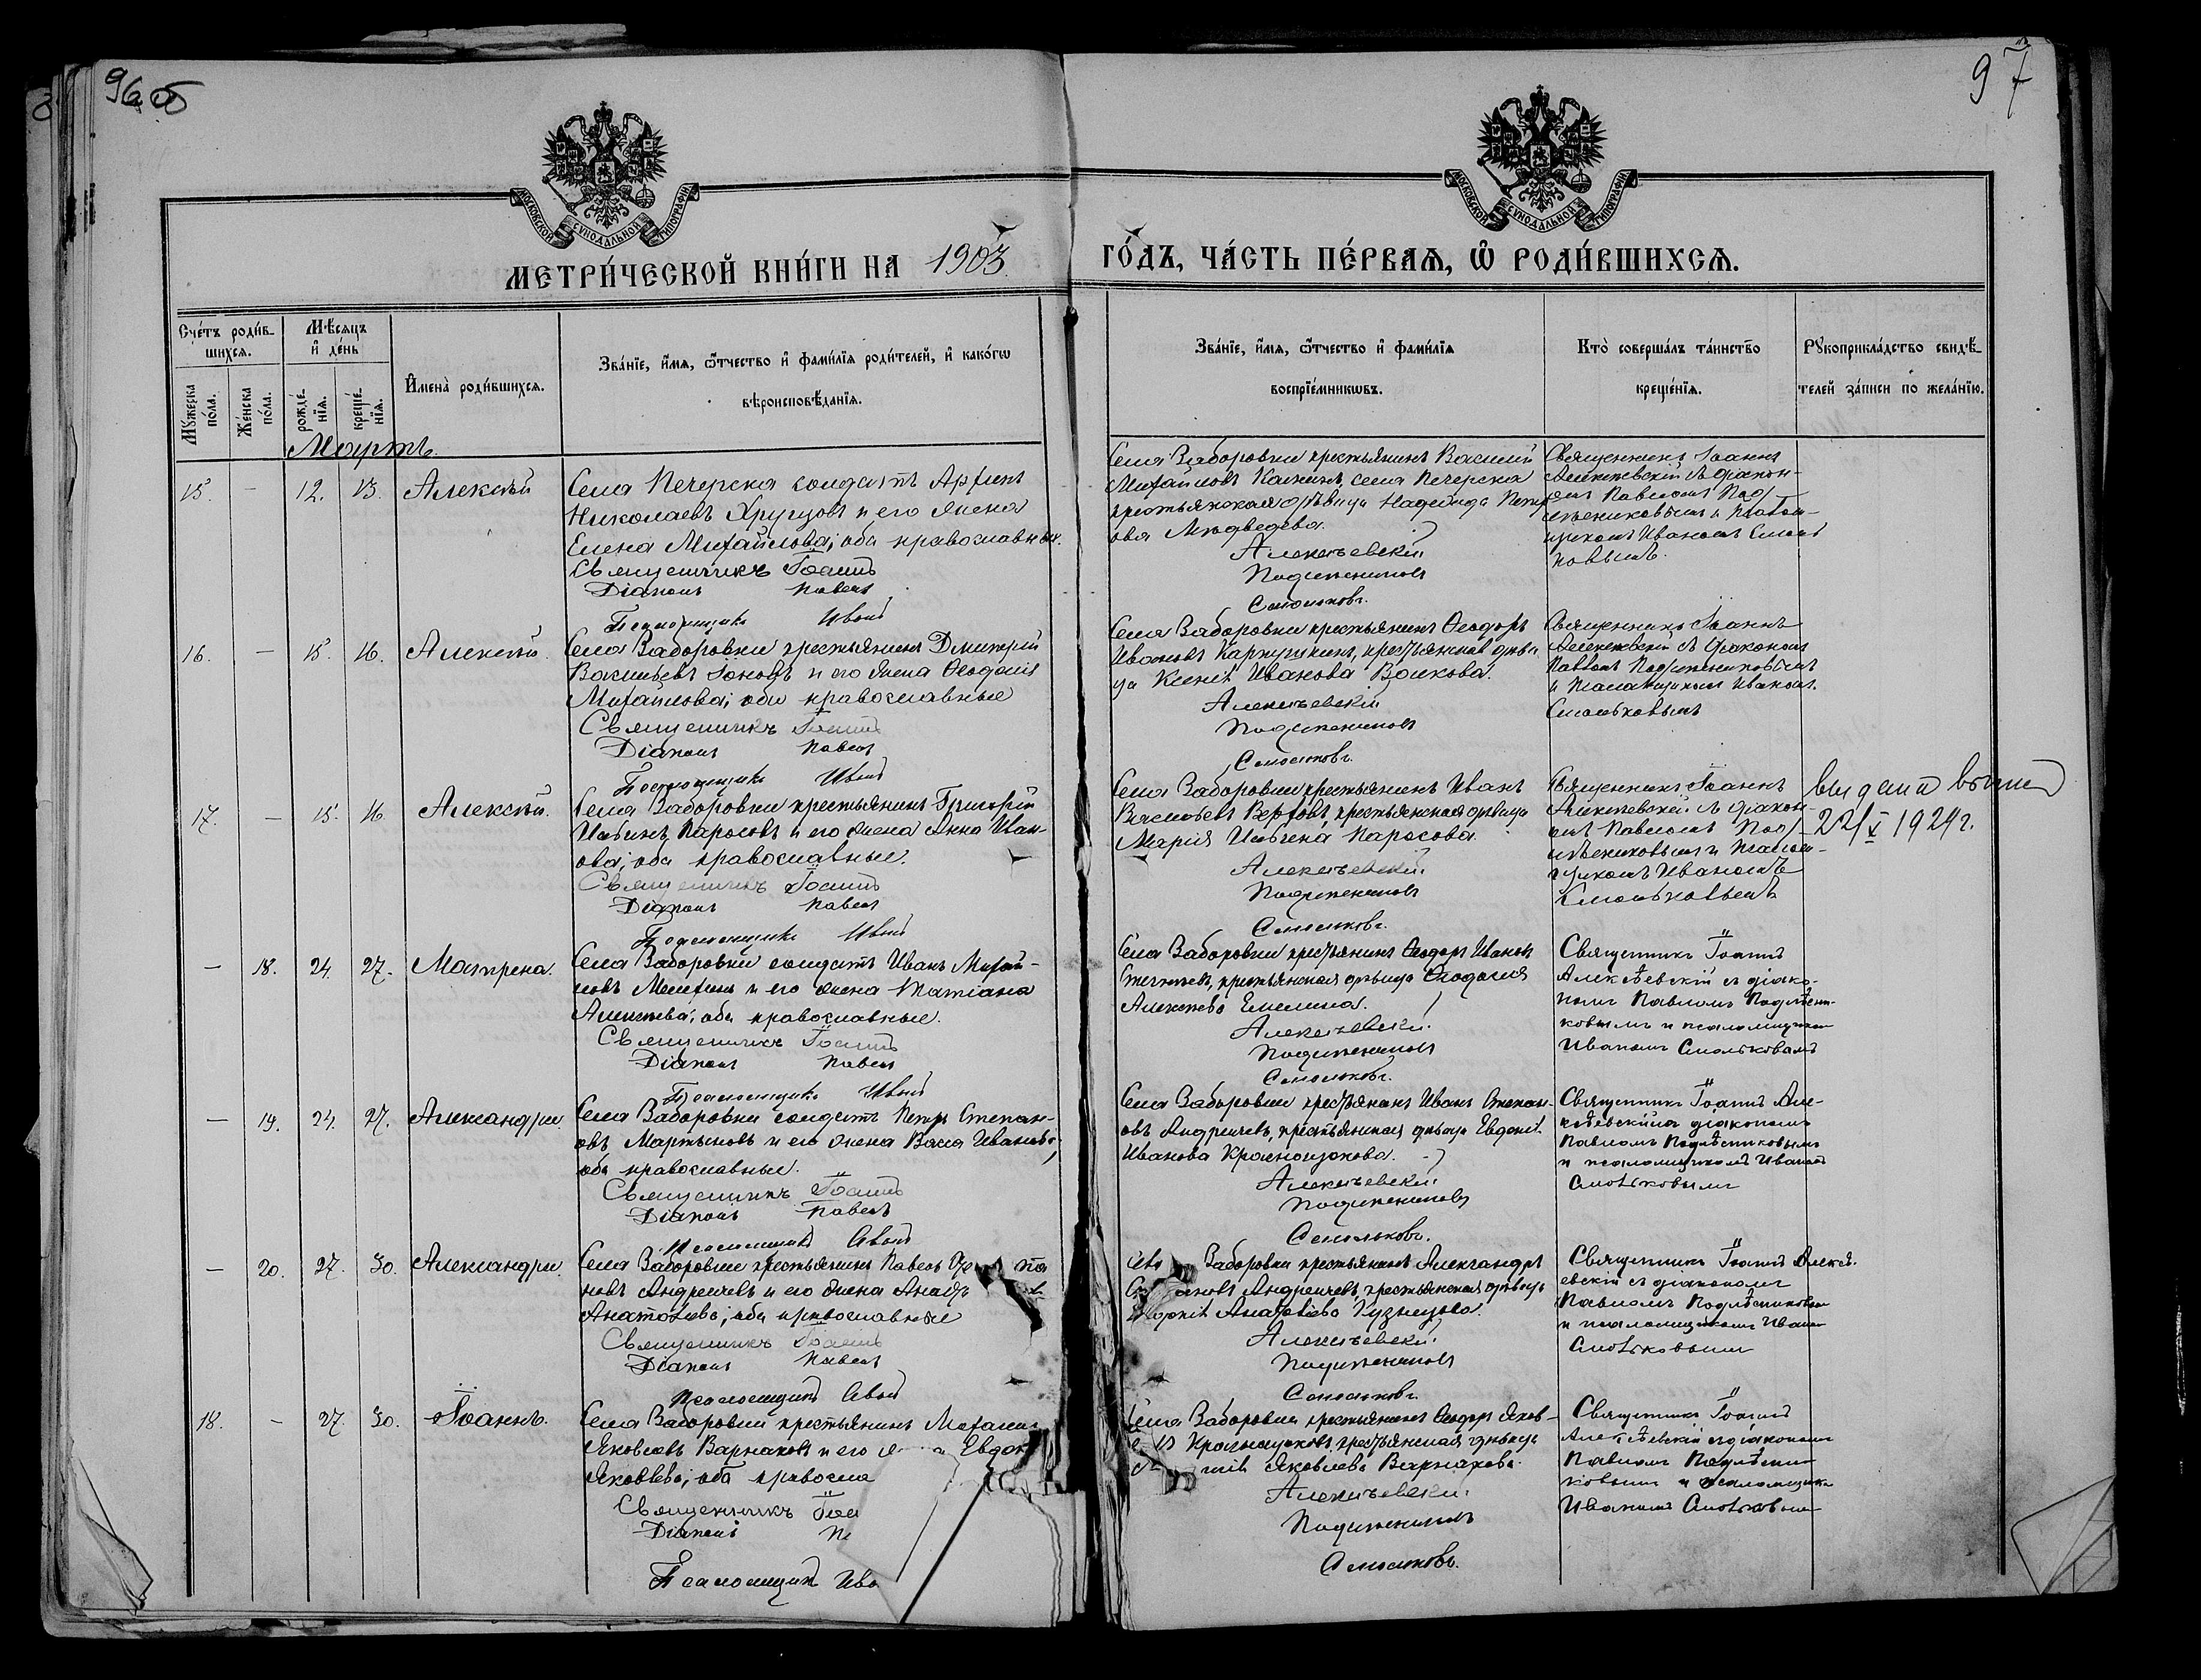 96 об
97
МОСКОВСКОЙ СУНОДАЛЬНОЙ ТИПОГРАФІИ
МОСКОВСКОЙ СУНОДАЛЬНОЙ ТИПОГРАФІИ
МЕТРИ́ЧЕСКОЙ КНИ́ГИ НА 1903
ГО́ДЪ, ЧА́СТЬ ПЕ́РВАѦ, Ѽ РОДИ́ВШИХСѦ.
Сче́тъ роди́в-
шихсѧ.
Мꙋжеска по́ла.
Же́нска по́ла.
Мѣ́сѧцъ
и҆ де́нь
рожде́-
нїѧ.
креще́-
нїѧ.
И҆мена̀ роди́вшихсѧ.
Зва́нїе, и҆́мѧ, ѻ҆́тчество и҆ фами́лїѧ роди́телей, и҆ како́гѡ
вѣроисповѣ́данїѧ.
Зва́нїе, и҆́мѧ, ѻ҆́тчество и҆ фами́лїѧ
воспрїе́мникѡвъ.
Кто̀ соверша́лъ та́инство
креще́нїѧ.
Рꙋкоприкла́дство свидѣ́-
телей за́писи по жела́нїю.
Мартъ.
15. — 12. 13. Алексѣй
Села Печерска солдатъ
Николаевъ и его жена
Елена Михайлова; оба православные.
Священникъ Іоаннъ
Діаконъ Павелъ
Псаломщикъ Иванъ
Села Заборовки крестьянинъ Василий
Михайловъ села Печерска
крестьянская дѣвица Надежда Петр
ова Медведева.
Алексѣевскій
Подлѣсниковъ
Смольковъ.
Священникъ Іоаннъ
Алексѣевскій съ діакон-
омъ Павломъ Подл
ѣсниковымъ и псалом-
щикомъ Иваномъ Смоль
ковымъ.
16. — 15. 16. Алексѣй.
Села Заборовки крестьянинъ Дмитрій
Васильевъ Іоновъ и его жена Ѳеодосія
Михайлова; оба православные
Священникъ Іоаннъ
Діаконъ Павелъ
Псаломщикъ Иванъ
Села Заборовки крестьянинъ Ѳеодоръ
Ивановъ крестьянская дѣви
ца Ксенія Иванова Волкова.
Алексѣевскій
Подлѣсниковъ
Смольковъ.
Священникъ Іоаннъ
Алексѣевскій съ діакономъ
Павломъ Подлѣсниковымъ
и псаломщикомъ Иваномъ
Смольковымъ
17. — 15. 16 Алексѣй.
Села Заборовки крестьянинъ Григорій
Ильинъ Паросовъ и его жена Анна Иван-
ова; оба православные.
Священникъ Іоаннъ
Діаконъ Павелъ
Псаломщикъ Иванъ
Села Заборовки крестьянинъ Иванъ
Васильевъ крестьянская дѣвица
Марія Ильина Паросова.
Алексѣевскій
Подлѣсниковъ
Смольковъ.
Священникъ Іоаннъ
Алексѣевскій съ діакон-
омъ Павломъ Подл-
ѣсниковымъ и псалом-
щикомъ Иваномъ
Смольковымъ
22/X 1924г.
— 18. 24. 27. Матрена.
Села Заборовки солдатъ Иванъ Михай-
ловъ и его жена Татіана
Алексѣева; оба православные.
Священникъ Іоаннъ
Діаконъ Павелъ
Псаломщикъ Иванъ
Села Заборовки крестьянинъ Ѳеодоръ Ивановъ
крестьянская дѣвица Ѳеодосія
Алексѣева Емелина.
Алексѣевскій
Подлѣсниковъ
Смольковъ.
Священникъ Іоаннъ
Алексѣевскій съ діако-
номъ Павломъ Подлѣсни-
ковымъ и псаломщикомъ
Иваномъ Смольковымъ
— 19. 24. 27. Александра
Села Заборовки солдатъ Петръ Степан-
овъ Мартыновъ и его жена Васса Иванова;
оба православные.
Священникъ Іоаннъ
Діаконъ Павелъ
Псаломщикъ Иванъ
Села Заборовки крестьянинъ Иванъ Степан-
овъ Андреичевъ, крестьянская дѣвица Евдокія
Иванова Краснощокова.
Алексѣевскій
Подлѣсниковъ
Смольковъ.
Священникъ Іоаннъ Але-
ксѣевскій съ діакономъ
Павломъ Подлѣсниковымъ
и псаломщикомъ Иваномъ
Смольковымъ
— 20. 27. 30. Александра.
Села Заборовки крестьянинъ Павелъ
новъ Андреичевъ и его жена
оба православные
Священникъ Іоаннъ
Діаконъ Павелъ
Псаломщикъ Иванъ
Села Заборовки крестьянинъ Александръ
Андреичевъ, крестьянская дѣвица
Кузнецова.
Алексѣевскій
Подлѣсниковъ
Смольковъ.
Священникъ Іоаннъ Алексѣ-
евскій съ діакономъ
Павломъ Подлѣсниковымъ
и псаломщикомъ Иваномъ
Смольковымъ
18. — 27. 30. Іоаннъ.
Села Заборовки крестьянинъ Михаилъ
Яковлевъ Варнаковъ и его Евдок
Яковлева; оба правосла
Священникъ Іоа
Діаконъ П
Псаломщикъ Ива
Села Заборовки крестьянинъ Ѳеодоръ Яков-
Краснощоковъ, крестьянская дѣвица
Яковлева Варнакова.
Алексѣевскій
Подлѣсниковъ
Смольковъ.
Священникъ Іоаннъ
Алексѣевскій съ діакономъ
Павломъ Подлѣсни-
ковымъ и псаломщикомъ
Иваномъ Смольковымъ